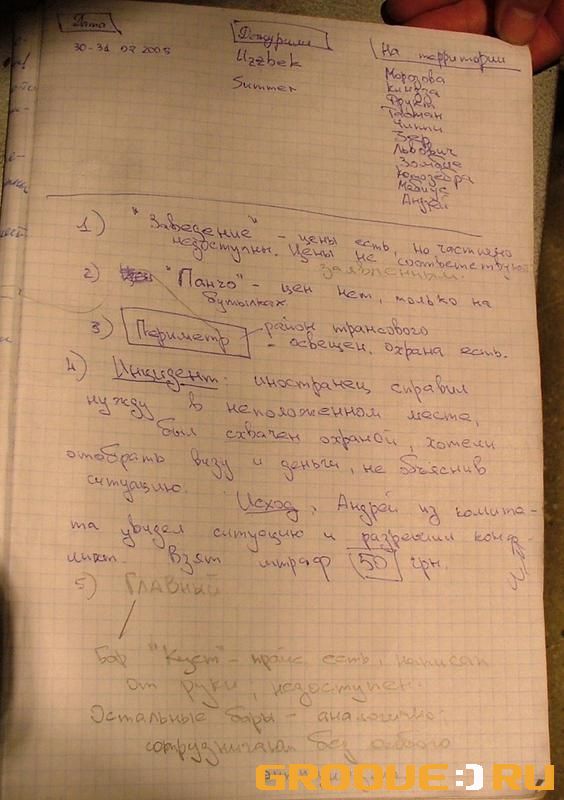 Дата Дежурили На территории
30-31 07 2005 Uzzbek Морозова
Summer Клякса
Фрукт
Тасман
Чиппи
Зер
Львович
Зомбие
Юлозебра
Мебиус
Андрей
1) "Заведение" - цены есть, но частично
недоступны. Цены не соответствуют
заявленным.
2) "Панчо" - цен нет, только на
бутылках
3) Периметр район трансового
- освещен, охрана есть.
4) Инцидент: иностранец справил
нужду в неположенном месте,
был схвачен охраной, хотели
отобрать визу и деньги, не объяснив
ситуацию.
Исход, Андрей из комите-
та увидел ситуацию и разрешил конф-
ликт. Взят штраф 50 грн.
5) Главный
Бар "Куст" - прайс есть, написан
от руки, недоступен.
Остальные бары - аналогично
сотрудничают без особого
GROOVE:)RU